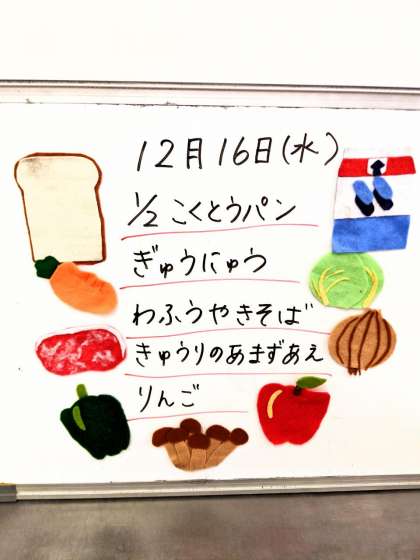 12月16日(水)
1/2 こくとうパン
ぎゅうにゅう
わふうやきそば
きゅうりのあまずあえ
りんご